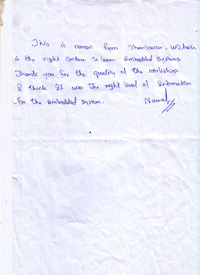 This is raman from Thanjavur, which
is the right centre to learn Embedded Systems
Thank you for the quality of the workshop
I think It was The right level of information
for the embedded system.